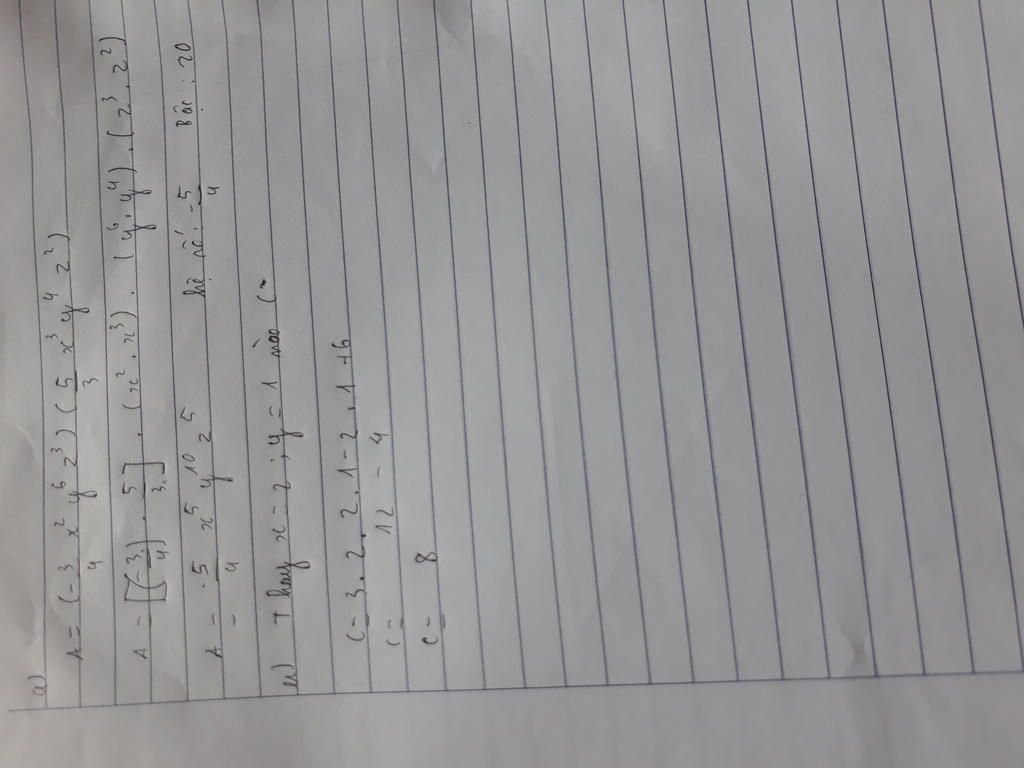 a)
A = (-3/4 x² y⁶ z³) (5/3 x³ y⁴ z²)
A = [(-3/4) . 5/3] . (x² . x³) . (y⁶ . y⁴) . (z³ . z²)
A = -5/4 x⁵ y¹⁰ z⁵ hệ số: -5/4 Bậc : 20
Thay x = 2 ; y = 1 vào C
C = 3 . 2 . 2 . 1 - 2 . 1 + 6
C = 12 - 4
C = 8